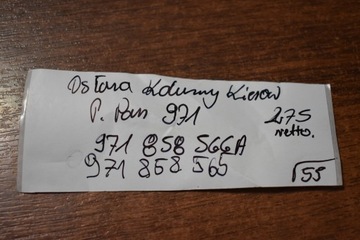 Osłona Kolumny Kierow
P. Pan 971
275
netto.
971 858 566A
971 858 565
55